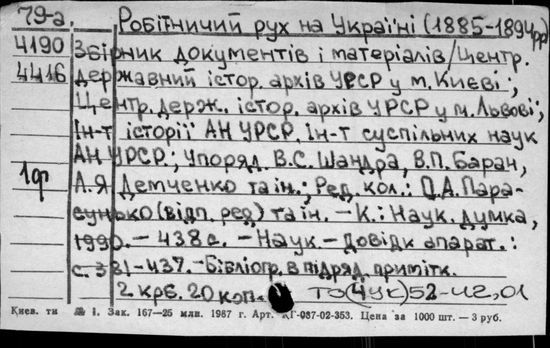 79-а. Робітничий рух на Україні (1885-1894рр)
4190 Збірник документів і матеріалів/Центр.
4416 державний істор. архів УРСР у м. Києві;
Центр. держ. істор. архів УРСР у м. Львові;
Ін-т історії АН УРСР, Ін-т суспільних наук
АН УРСР.; Упоряд. В.С. Шандра, В.П. Баран,
1ф А.Я Демченко та ін.; Ред. кол.: П.А. Пара-
сунько (відп. ред) та ін. — К.: Наук. думка,
1990. — 438 с. — Наук. — довідк апарат.:
с. 381-437. — Бібліогр. в підряд. примітк.
2 крб. 20 коп. ТО(4Ук)52-42,01
Києв. ти № 1. Зак. 167—25 млн. 1987 г. Арт. КГ-087-02-353. Цена за 1000 шт. — 3 руб.